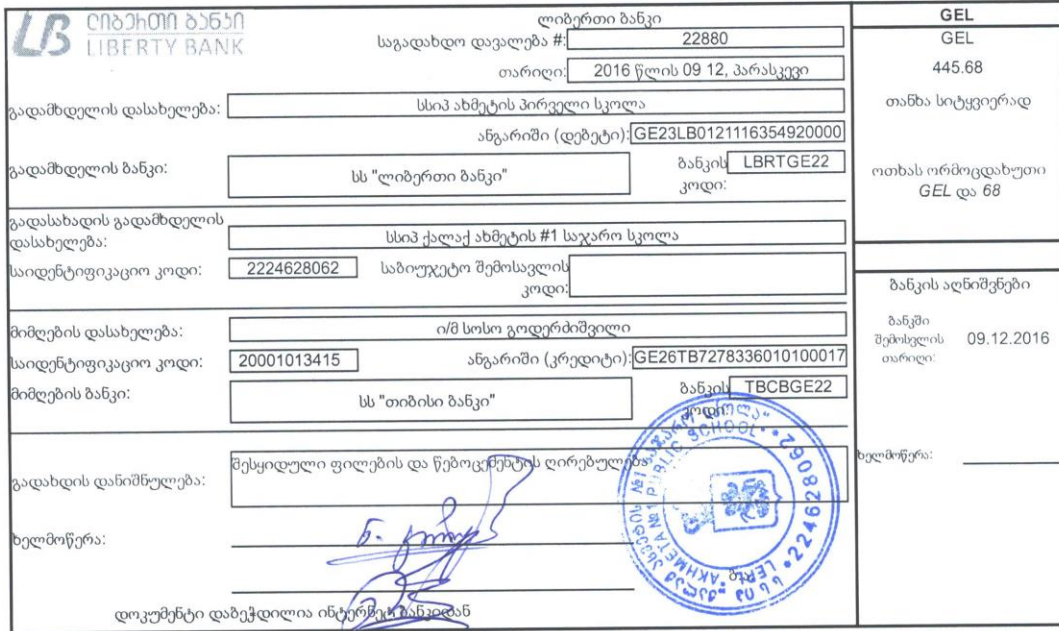 ლიბერთი ბანკი
LIBERTY BANK
ლიბერთი ბანკი
საგადახდო დავალება #: 22880
თარიღი: 2016 წლის 09 12, პარასკევი
გადამხდელის დასახელება: სსიპ ახმეტის პირველი სკოლა
ანგარიში (დებეტი): GE23LB0121116354920000
გადამხდელის ბანკი: სს "ლიბერთი ბანკი" ბანკის კოდი: LBRTGE22
გადასახადის გადამხდელის
დასახელება: სსიპ ქალაქ ახმეტის #1 საჯარო სკოლა
საიდენტიფიკაციო კოდი: 2224628062 საბიუჯეტო შემოსავლის
კოდი:
მიმღების დასახელება: ი/მ სოსო გოდერძიშვილი
საიდენტიფიკაციო კოდი: 20001013415 ანგარიში (კრედიტი): GE26TB7278336010100017
მიმღების ბანკი: სს "თიბისი ბანკი" ბანკის კოდი: TBCBGE22
გადახდის დანიშნულება: შესყიდული ფილების და წებოცემენტის ღირებულება
ხელმოწერა:
დოკუმენტი დაბეჭდილია ინტერნეტ ბანკიდან
GEL
GEL
445.68
თანხა სიტყვიერად
ოთხას ორმოცდახუთი
GEL და 68
ბანკის აღნიშვნები
ბანკში
შემოსვლის 09.12.2016
თარიღი:
ხელმოწერა:
PUBLIC SCHOOL
AKHMETA №1
224628062